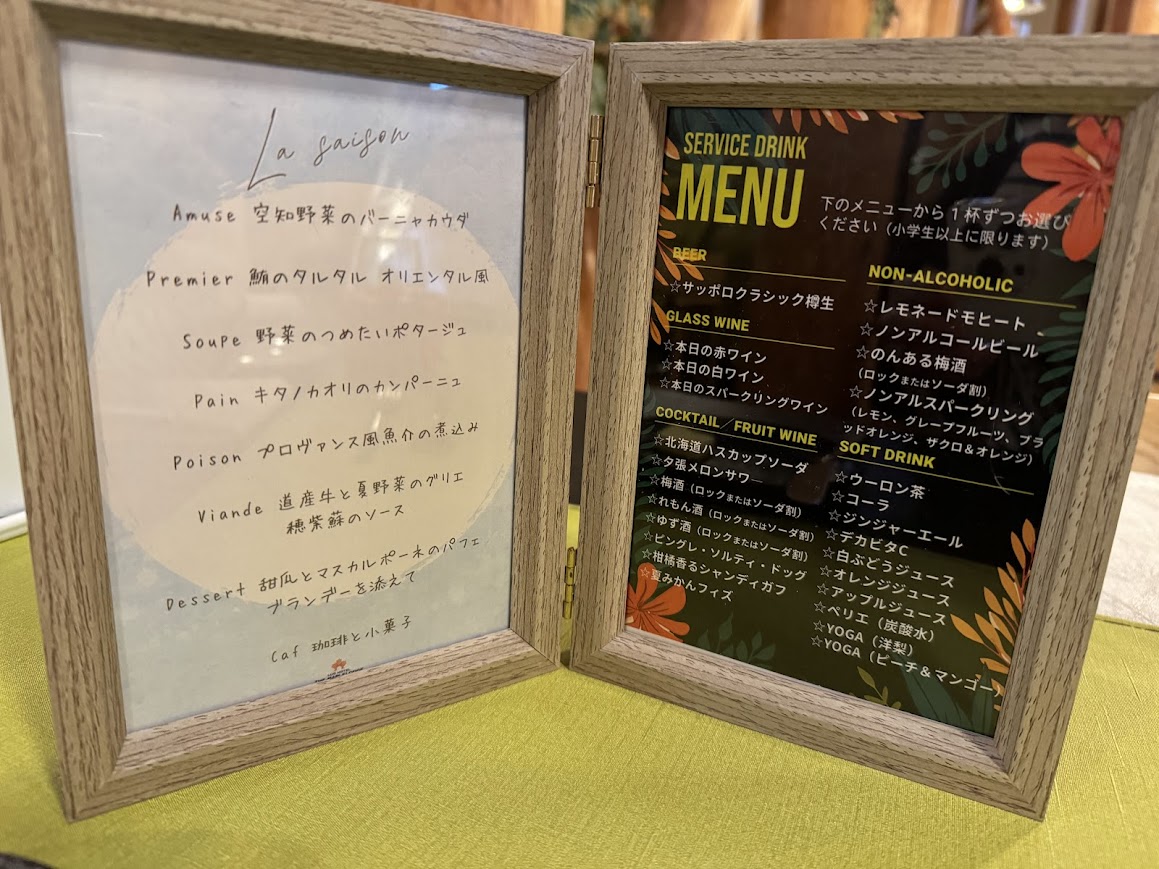 La saison
Amuse 空知野菜のバーニャカウダ
Premier 鮪のタルタル オリエンタル風
Soupe 野菜のつめたいポタージュ
Pain キタノカオリのカンパーニュ
Poison プロヴァンス風魚介の煮込み
Viande 道産牛と夏野菜のグリエ
穂紫蘇のソース
Dessert 甜瓜とマスカルポーネのパフェ
ブランデーを添えて
Caf 珈琲と小菓子
SERVICE DRINK
MENU
下のメニューから1杯ずつお選び
ください（小学生以上に限ります）
BEER
☆サッポロクラシック樽生
GLASS WINE
☆本日の赤ワイン
☆本日の白ワイン
☆本日のスパークリングワイン
COCKTAIL／FRUIT WINE
☆北海道ハスカップソーダ
☆夕張メロンサワー
☆梅酒（ロックまたはソーダ割）
☆れもん酒（ロックまたはソーダ割）
☆ゆず酒（ロックまたはソーダ割）
☆ピングレ・ソルティ・ドッグ
☆柑橘香るシャンディガフ
☆夏みかんフィズ
NON-ALCOHOLIC
☆レモネードモヒート
☆ノンアルコールビール
☆のんある梅酒
（ロックまたはソーダ割）
☆ノンアルスパークリング
（レモン、グレープフルーツ、ブラ
ッドオレンジ、ザクロ＆オレンジ）
SOFT DRINK
☆ウーロン茶
☆コーラ
☆ジンジャーエール
☆デカビタC
☆白ぶどうジュース
☆オレンジジュース
☆アップルジュース
☆ペリエ（炭酸水）
☆YOGA（洋梨）
☆YOGA（ピーチ＆マンゴー）